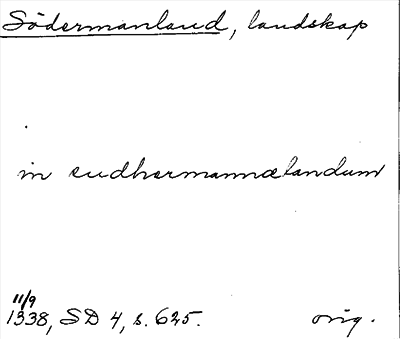 Södermanland, landskap
in sudhermannælandum
11/9
1338, SD 4, s. 625. orig.